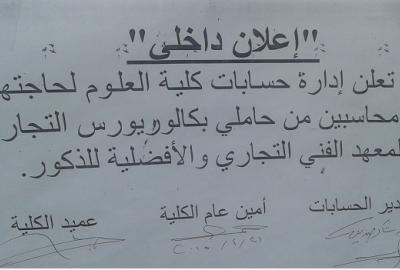 "إعلان داخلي"
تعلن إدارة حسابات كلية العلوم لحاجته
محاسبين من حاملي بكالوريورس التجار
لمعهد الفني التجاري والأفضلية للذكور.
دير الحسابات أمين عام الكلية عميد الكلية